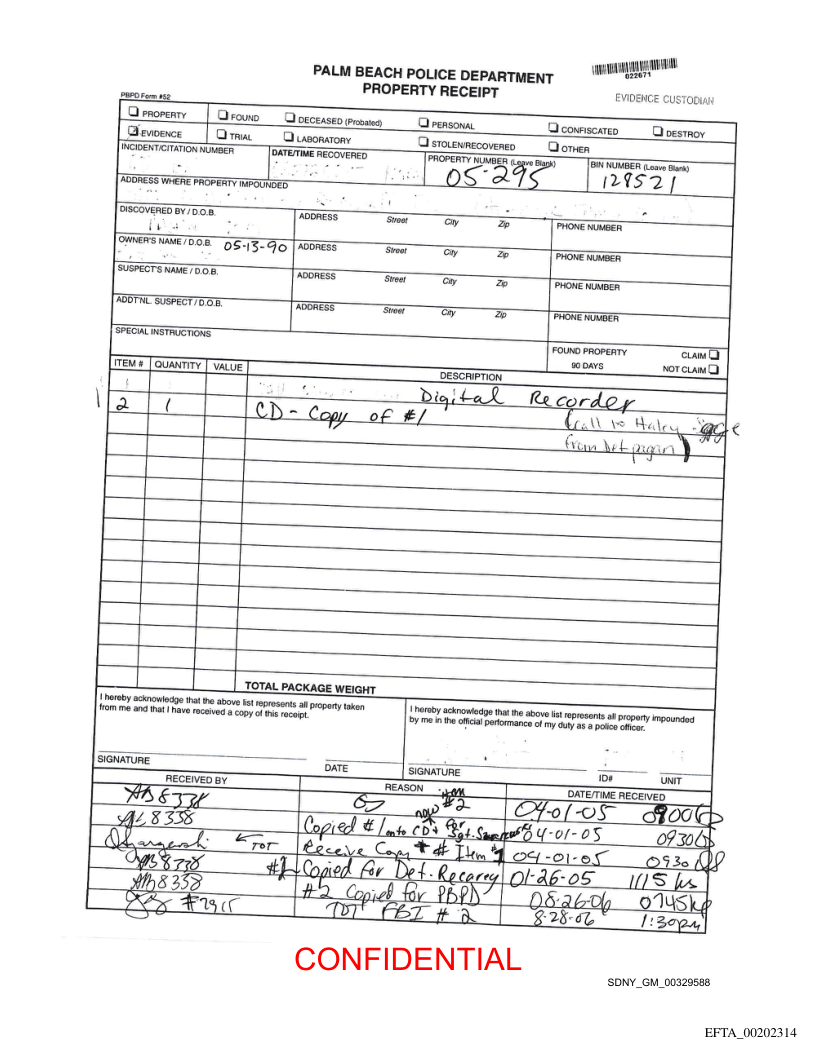 PALM BEACH POLICE DEPARTMENT
PROPERTY RECEIPT
022671
EVIDENCE CUSTODIAN
PBPD Form #52
PROPERTY FOUND DECEASED (Probated) PERSONAL CONFISCATED DESTROY
EVIDENCE TRIAL LABORATORY STOLEN/RECOVERED OTHER
INCIDENT/CITATION NUMBER DATE/TIME RECOVERED PROPERTY NUMBER (Leave Blank) BIN NUMBER (Leave Blank)
05-295 128521
ADDRESS WHERE PROPERTY IMPOUNDED
DISCOVERED BY / D.O.B. ADDRESS Street City Zip PHONE NUMBER
OWNER'S NAME / D.O.B. 05-13-90 ADDRESS Street City Zip PHONE NUMBER
SUSPECT'S NAME / D.O.B. ADDRESS Street City Zip PHONE NUMBER
ADDT'NL. SUSPECT / D.O.B. ADDRESS Street City Zip PHONE NUMBER
SPECIAL INSTRUCTIONS
FOUND PROPERTY CLAIM
90 DAYS NOT CLAIM
ITEM # QUANTITY VALUE DESCRIPTION
Digital Recorder
2 1 CD - Copy of #1
(call to Haley
from Det pagan)
TOTAL PACKAGE WEIGHT
I hereby acknowledge that the above list represents all property taken
from me and that I have received a copy of this receipt.
I hereby acknowledge that the above list represents all property impounded
by me in the official performance of my duty as a police officer.
SIGNATURE DATE SIGNATURE ID# UNIT
RECEIVED BY REASON DATE/TIME RECEIVED
8338 04-01-05
8338 Copied #1 onto CD now item #2 for Sgt. 04-01-05 0930
TOT Receive Copy Item 04-01-05 0930
8338 Copied for Det. Recarey 01-26-05 1115 hrs
8338 #2 Copied for PBPD 08-26-06 0745
TOT FBI #2 8-28-06 1:30pm
CONFIDENTIAL
SDNY_GM_00329588
EFTA_00202314